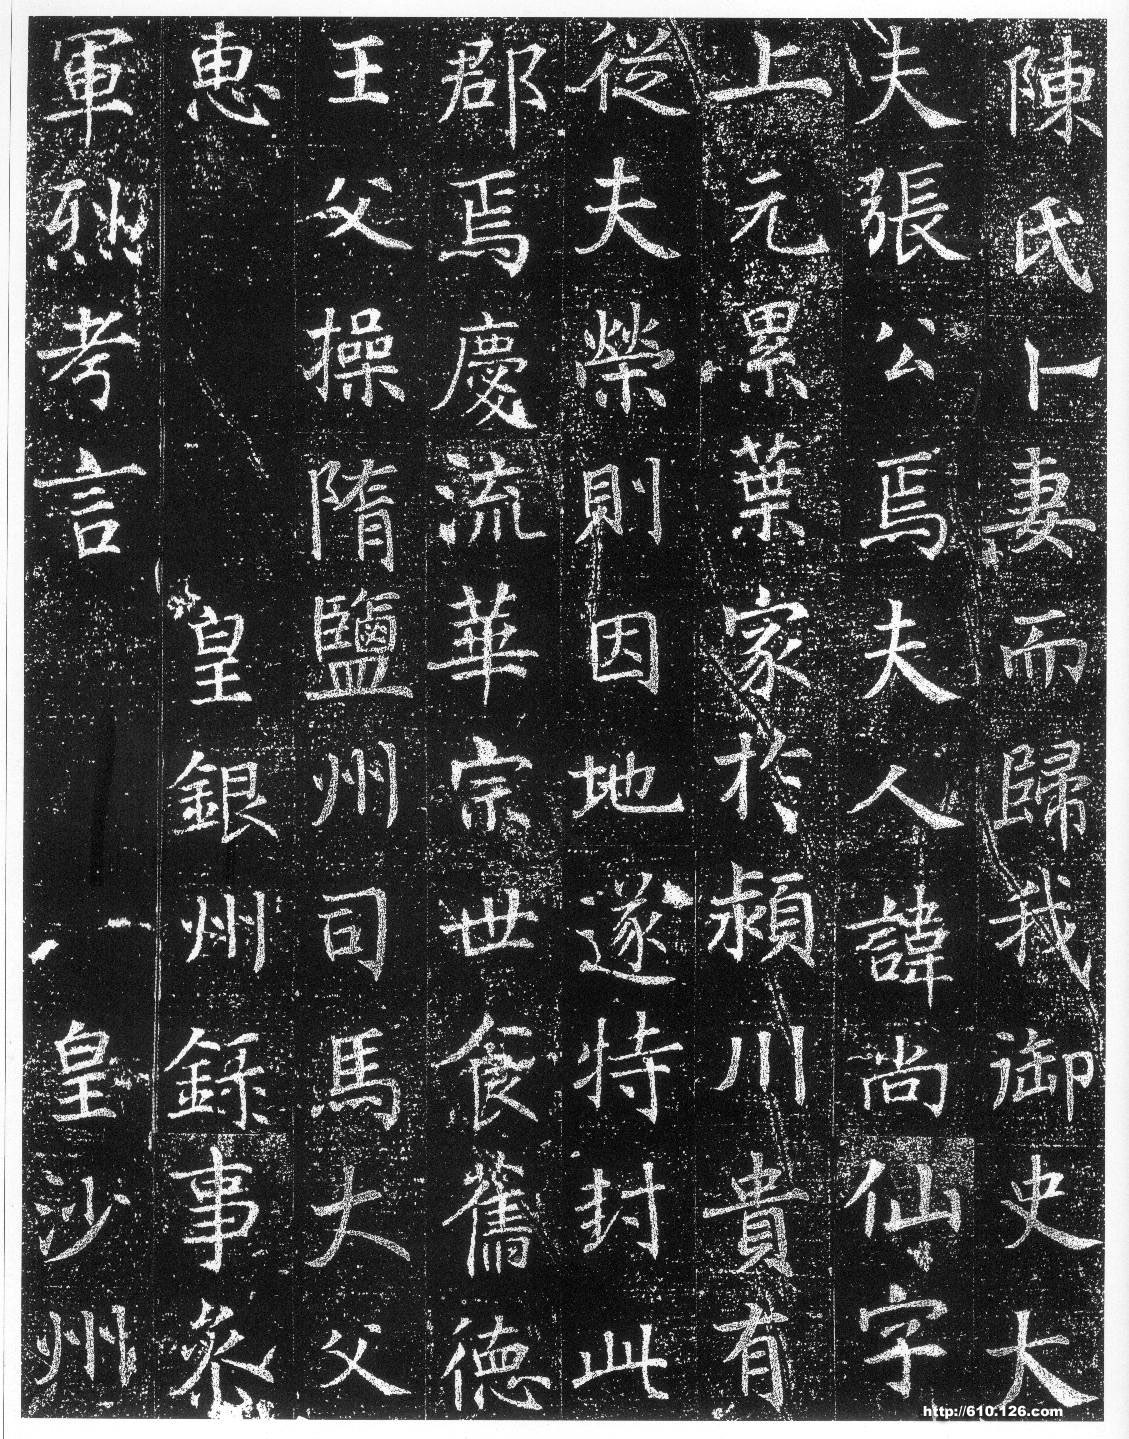 陳氏卜妻而歸我御史大
夫張公焉夫人諱尚仙字
上元累葉家於潁川貴有
從夫榮則因地遂特封此
郡焉慶流華宗世食舊德
王父操隋鹽州司馬大父
惠皇銀州錄事叅
軍烈考言皇沙州
http://610.126.com